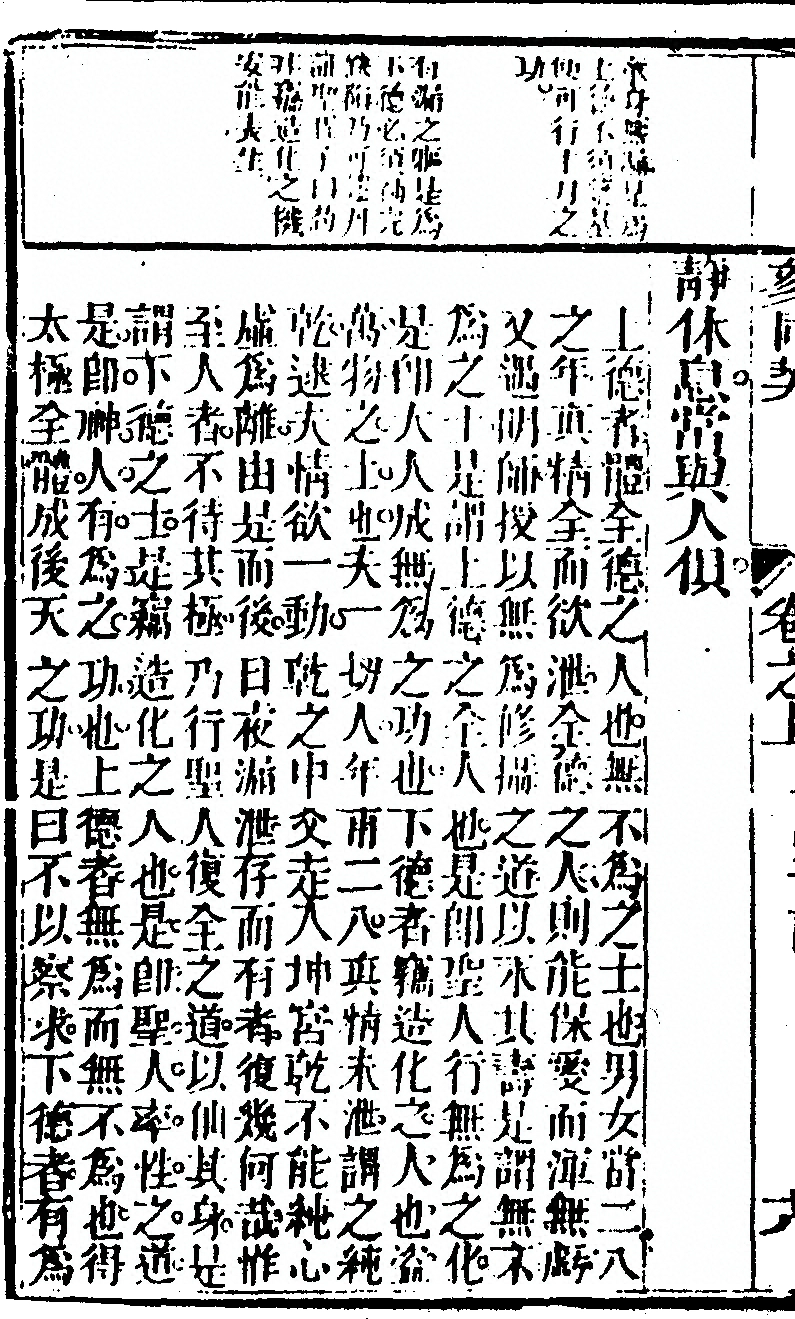 參同契 卷之上
無漏是為
上德不須築基
便可行十月之
功
有漏之軀是為
下德必須補完
缺陷乃可還丹
非竊造化之機
安能長生
靜休息常與人俱
上德者體全德之人也無不為之士也男女當二八
之年真精全而欲泄全德之人則能保愛而渾無虧
又遇明師授以無為修攝之道以永其壽是謂無不
為之士是謂上德之全人也是即聖人行無為之化
是即大人成無為之功也下德者竊造化之人也盜
萬物之士也夫一切人年甫二八真情未泄謂之純
乾逮夫情欲一動乾之中爻走入坤宮乾不能純心
虛為離由是而後日夜漏泄存而有者復幾何哉惟
至人者不待其極乃行聖人復全之道以仙其身是
謂下德之士是竊造化之人也是即聖人率性之道
是即神人有為之功也上德者無為而無不為也得
太極全體成後天之功是曰不以察求下德者有為